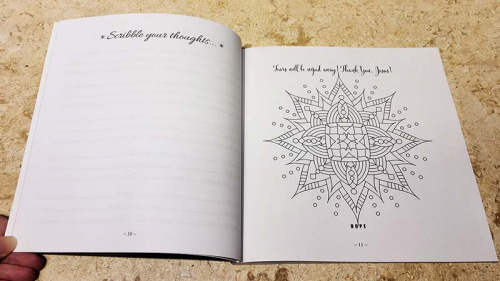 Scribble your thoughts...
~ 10 ~
Tears will be wiped away! Thank You, Jesus!
HOPE
~ 11 ~